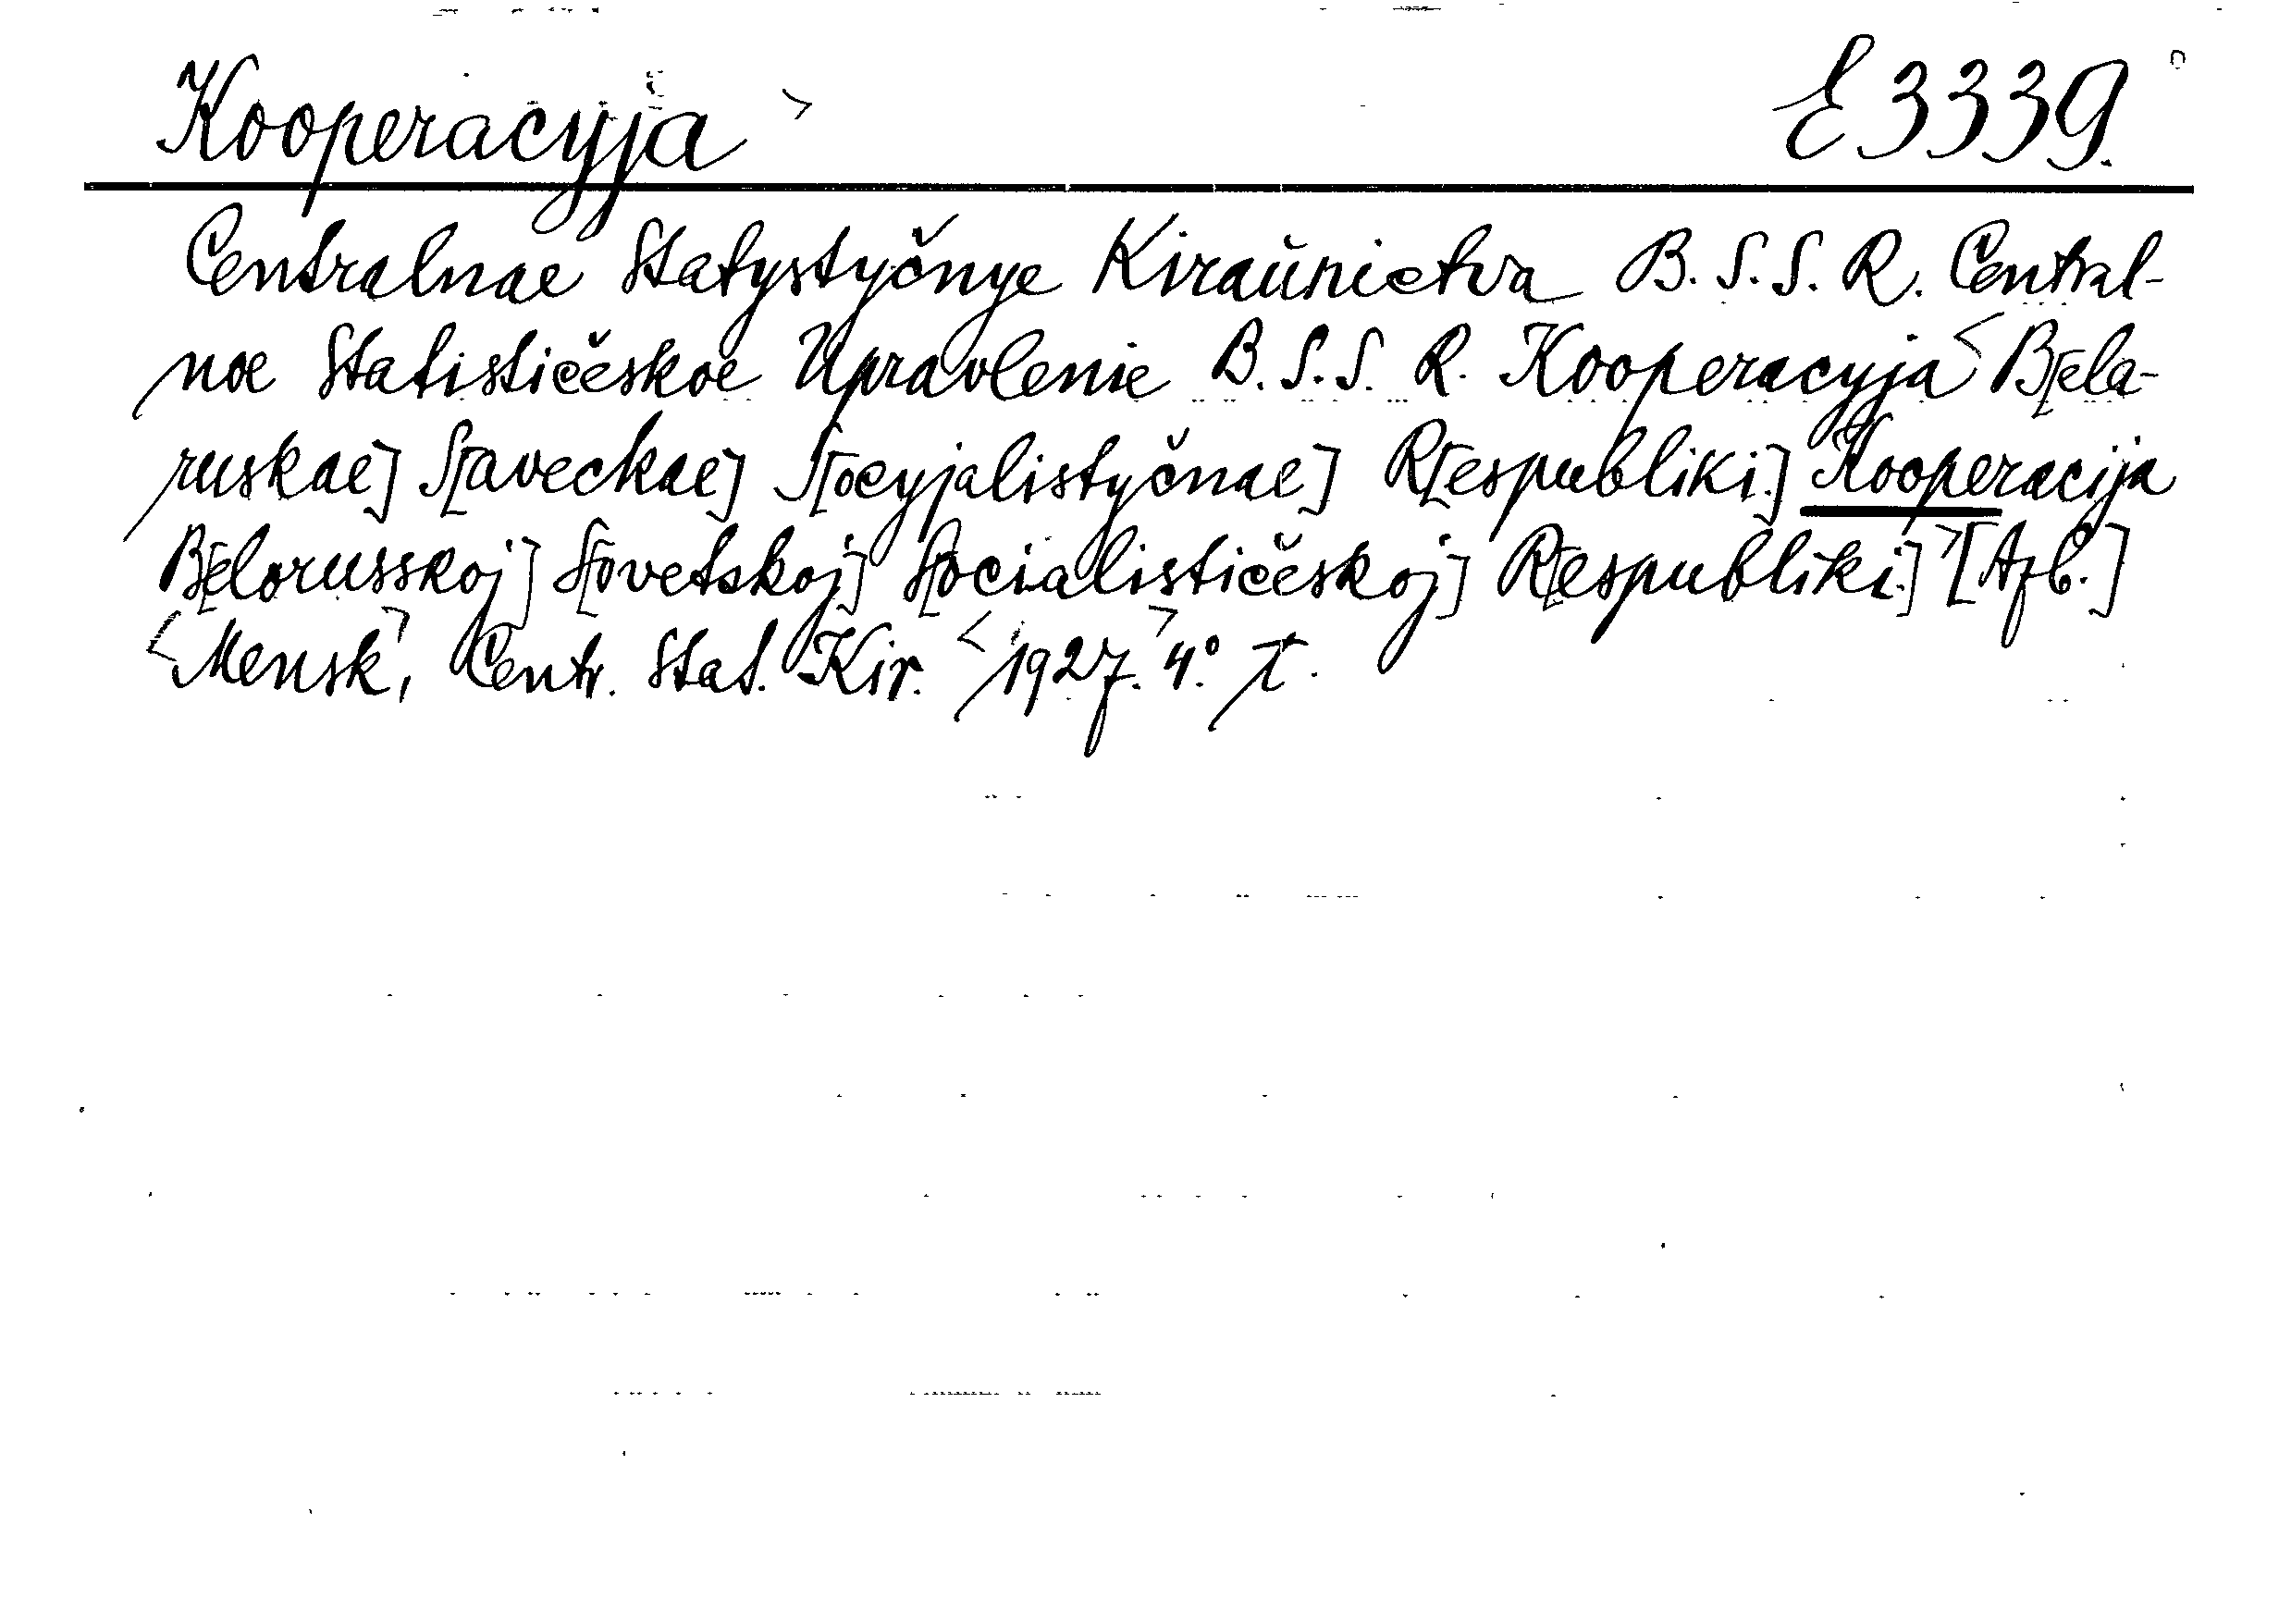 Kooperacyja > E 3339.
Centralnae Statystyčnye Kiraŭnictva B. S. S. R. Central-
noe Statističeskoe Upravlenie B. S. S. R. Kooperacyja < B[ela-
ruskae] S[aveckae] S[ocyjalistyčnae] R[espubliki.] Kooperacija
B[elorusskoj] S[ovetskoj] S[ocialističeskoj] R[espubliki.] > [Afb.]
<Mensk>, Centr. Stat. Kir. <1927.> 4°.